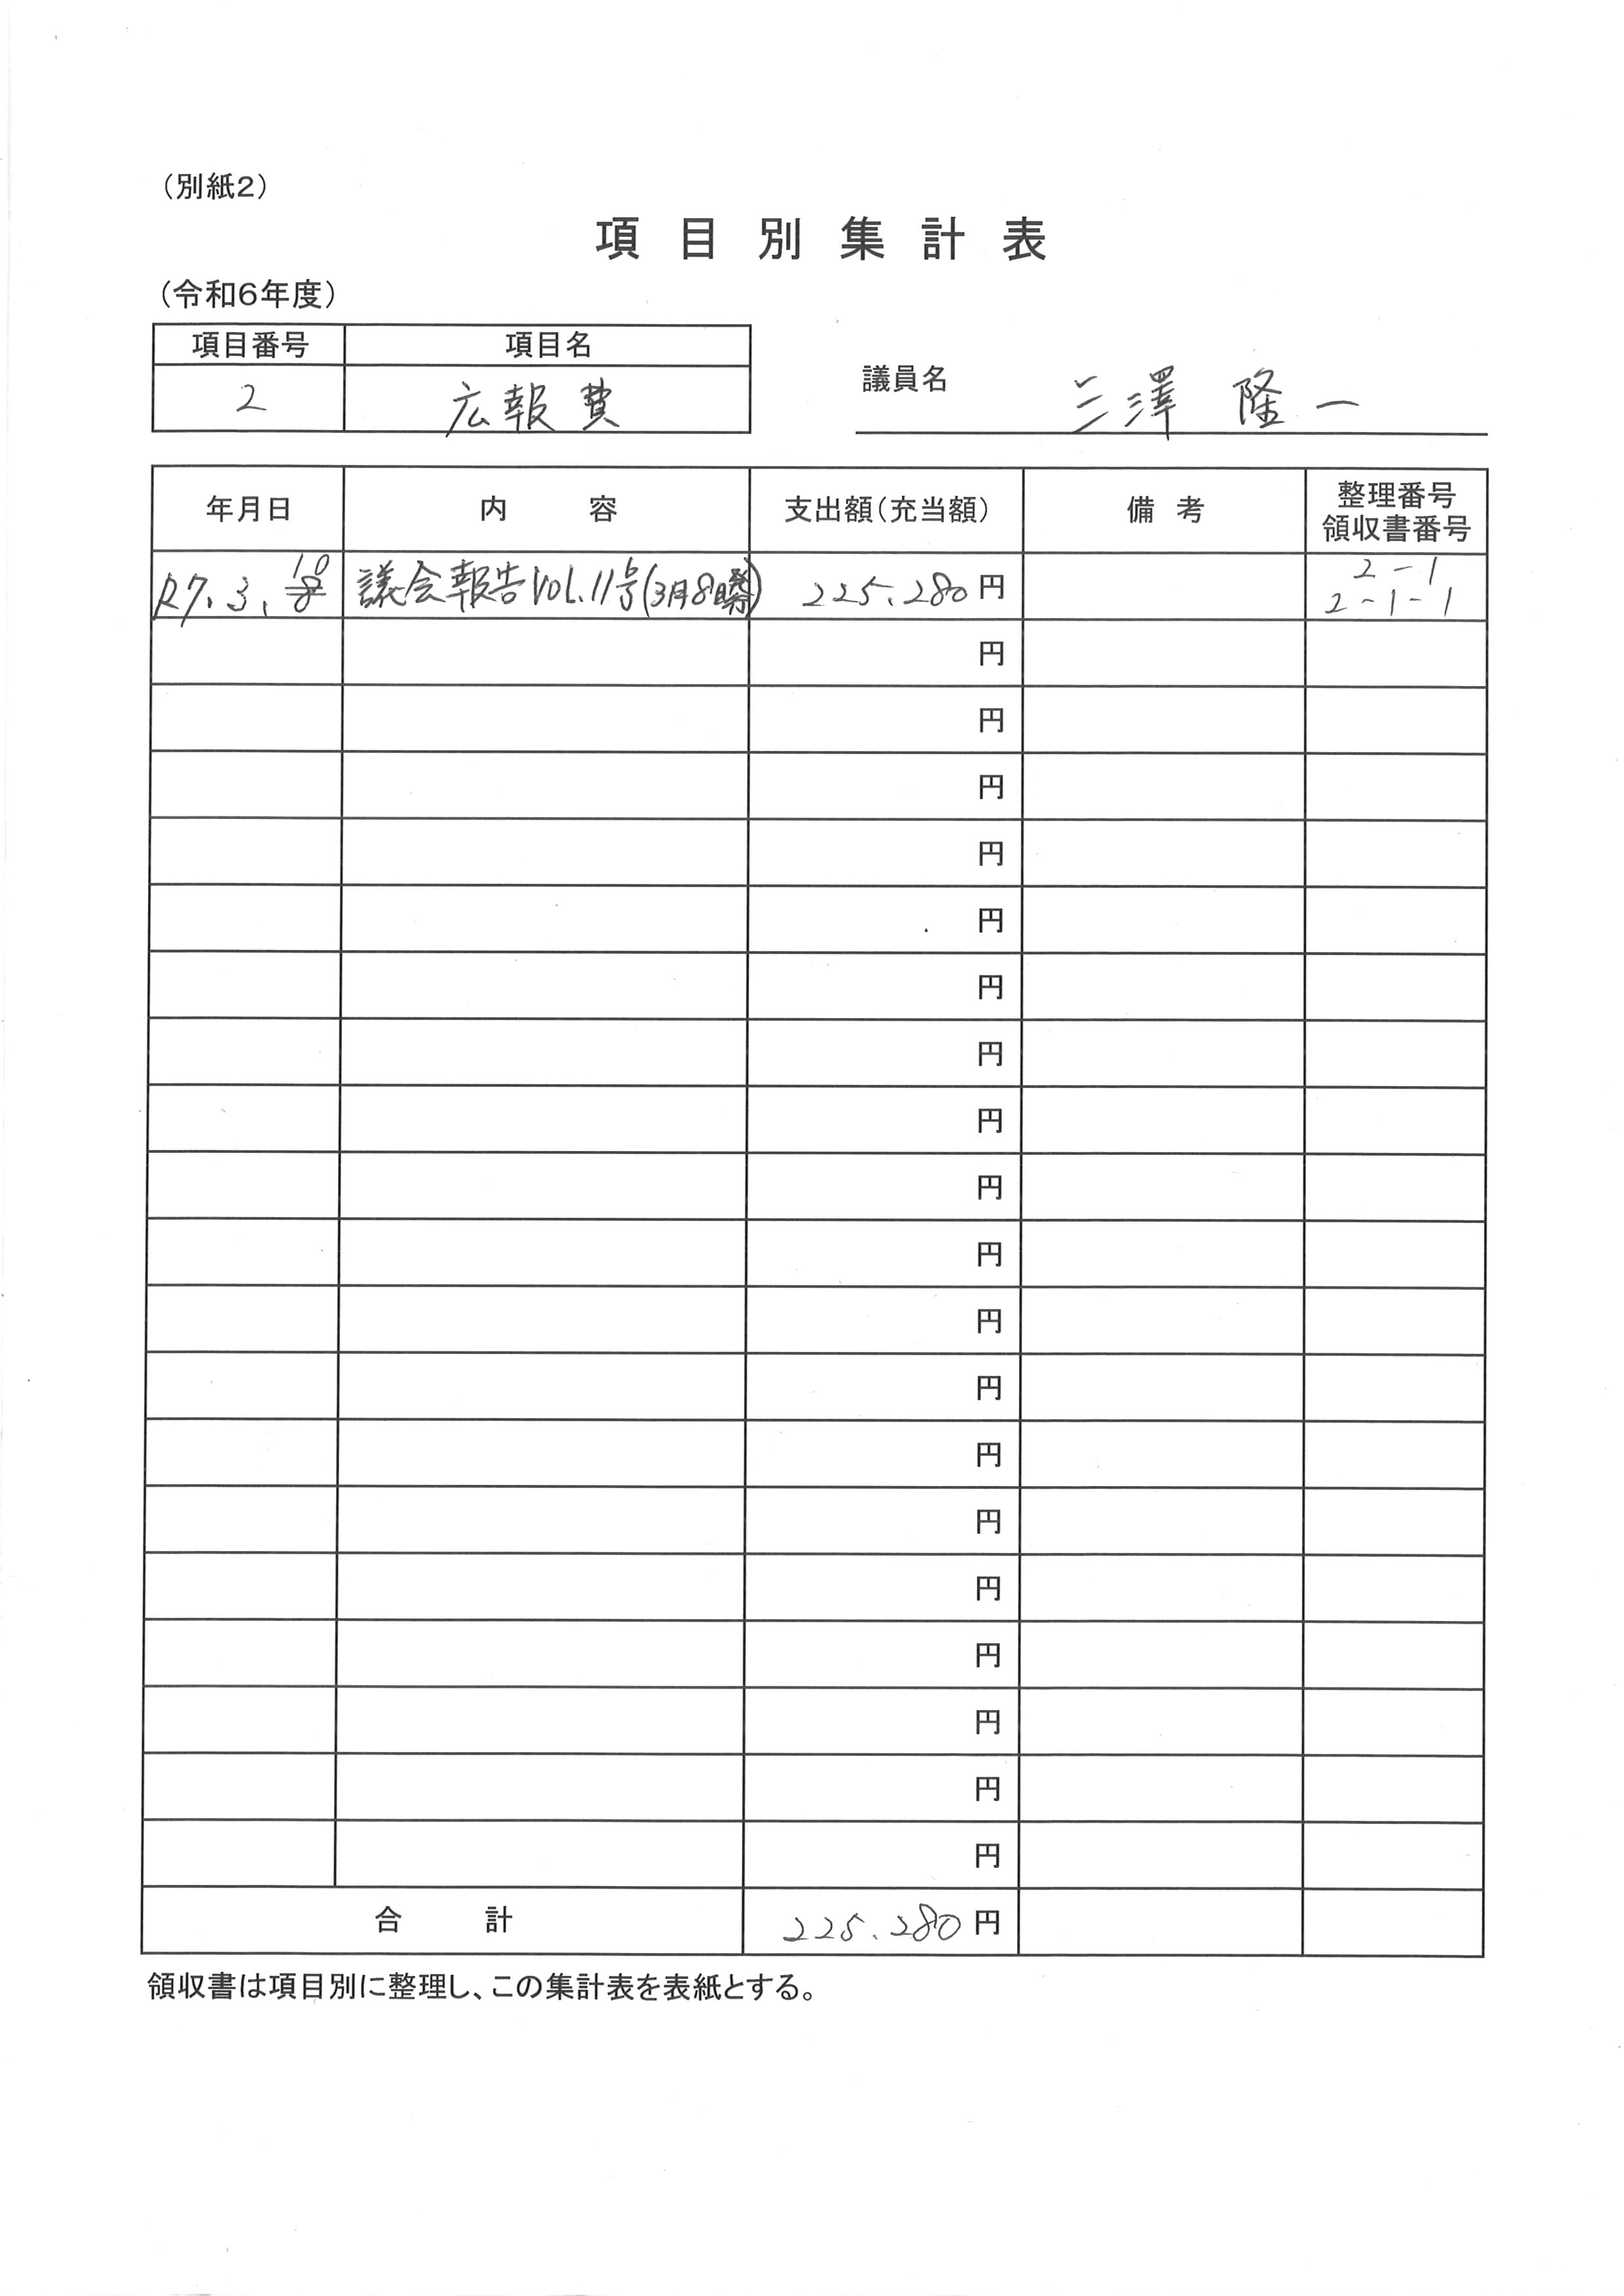 （別紙２）
項目別集計表
（令和６年度）
項目番号 項目名
2 広報費
議員名 三澤 隆一
年月日 内容 支出額（充当額） 備考 整理番号 領収書番号
10
R7.3.8 議会報告Vol.11号(3月8日 225.280円 2-1
2-1-1
円
円
円
円
円
円
円
円
円
円
円
円
円
円
円
円
円
円
円
合計 225.280円
領収書は項目別に整理し、この集計表を表紙とする。